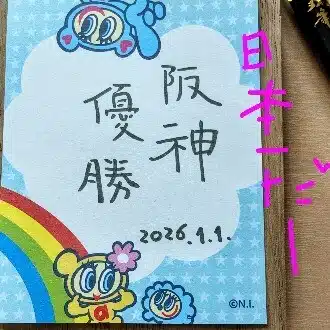 阪神
優勝
2026.1.1.
日本一だー
©N.I.